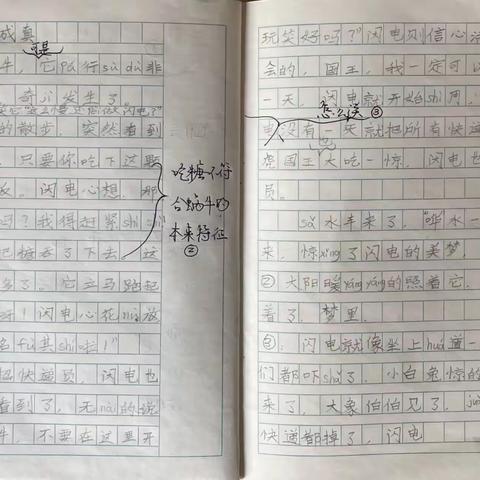 成真
可是
牛，它pá行sù dù非
奇jì发生了
的散步，突然看到
只要你吃下这颗
闪电心想，那
吗？我得赶紧shì
把糖吞了下去，这
多了。它立马跑起
闪电心花nù放
名fù其shí啦！”
招快递员，闪电也
看到了，无nài的说
牛，不要在这里开
吃糖不符
合蜗牛的
本来特征
②
玩笑好吗？”闪电则信心
会的，国王，我一定可以
一天，闪电就开始shì用
怎么送③
电没有一天就把所有快递
虎国王大吃一惊，闪电也
员。
sǎ水车来了，“哗”水一
来，惊xǐng了闪电的美梦，
②大阳暖yáng yáng的照着它，
着了，梦里，
闪电就像坐上huá道一
们都吓shǎ了，小白兔惊的
来了，大象伯伯见了，
快递都掉了，闪电